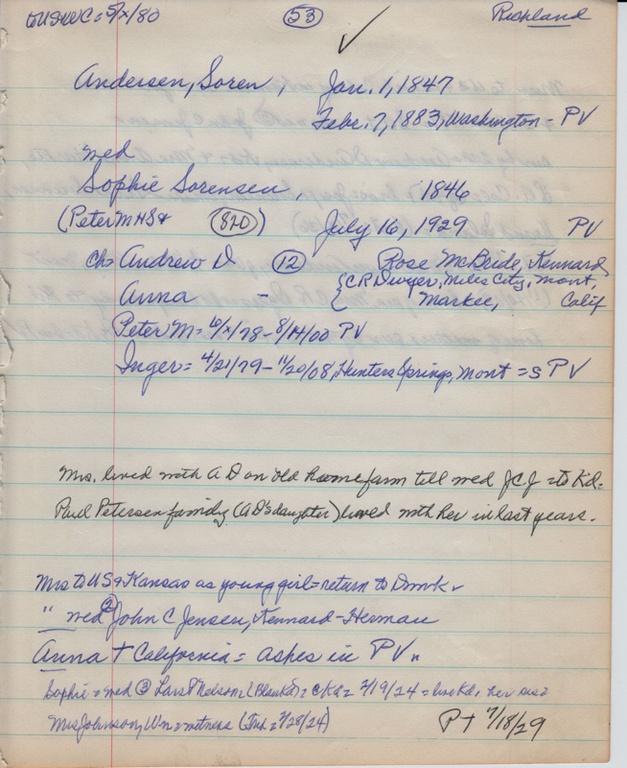 to US+WC = 5/x/80 (53) Richland
✓
Andersen, Soren, Jan. 1, 1847
Febr. 7, 1883, Washington = PV
wed
Sophie Sorensen, 1846
(Peter M HS& (820)) July 16, 1929 PV
ch = Andrew D (12) Rose McBride, Kennard
Anna - { C R Dwyer, Miles City, Mont,
Markee, Calif
Peter M = 6/x/78 - 8/14/00 PV
Inger = 4/21/79 - 11/20/08, Hunters Springs, Mont = S PV
Mrs. lived with A D on old home farm till wed J C J = to Kd.
Paul Petersen family (A D's daughter) lived with her in last years.
Mrs to US & Kansas as young girl = return to Dmk.
" wed (2) John C Jensen, Kennard - Herman
Anna + California = ashes in PV.
Sophie = wed (3) Lars P Nelson, = C Kd = 2/19/24 = live Kd, her
Mrs Johnson, Wn = witness
P + 7/18/29